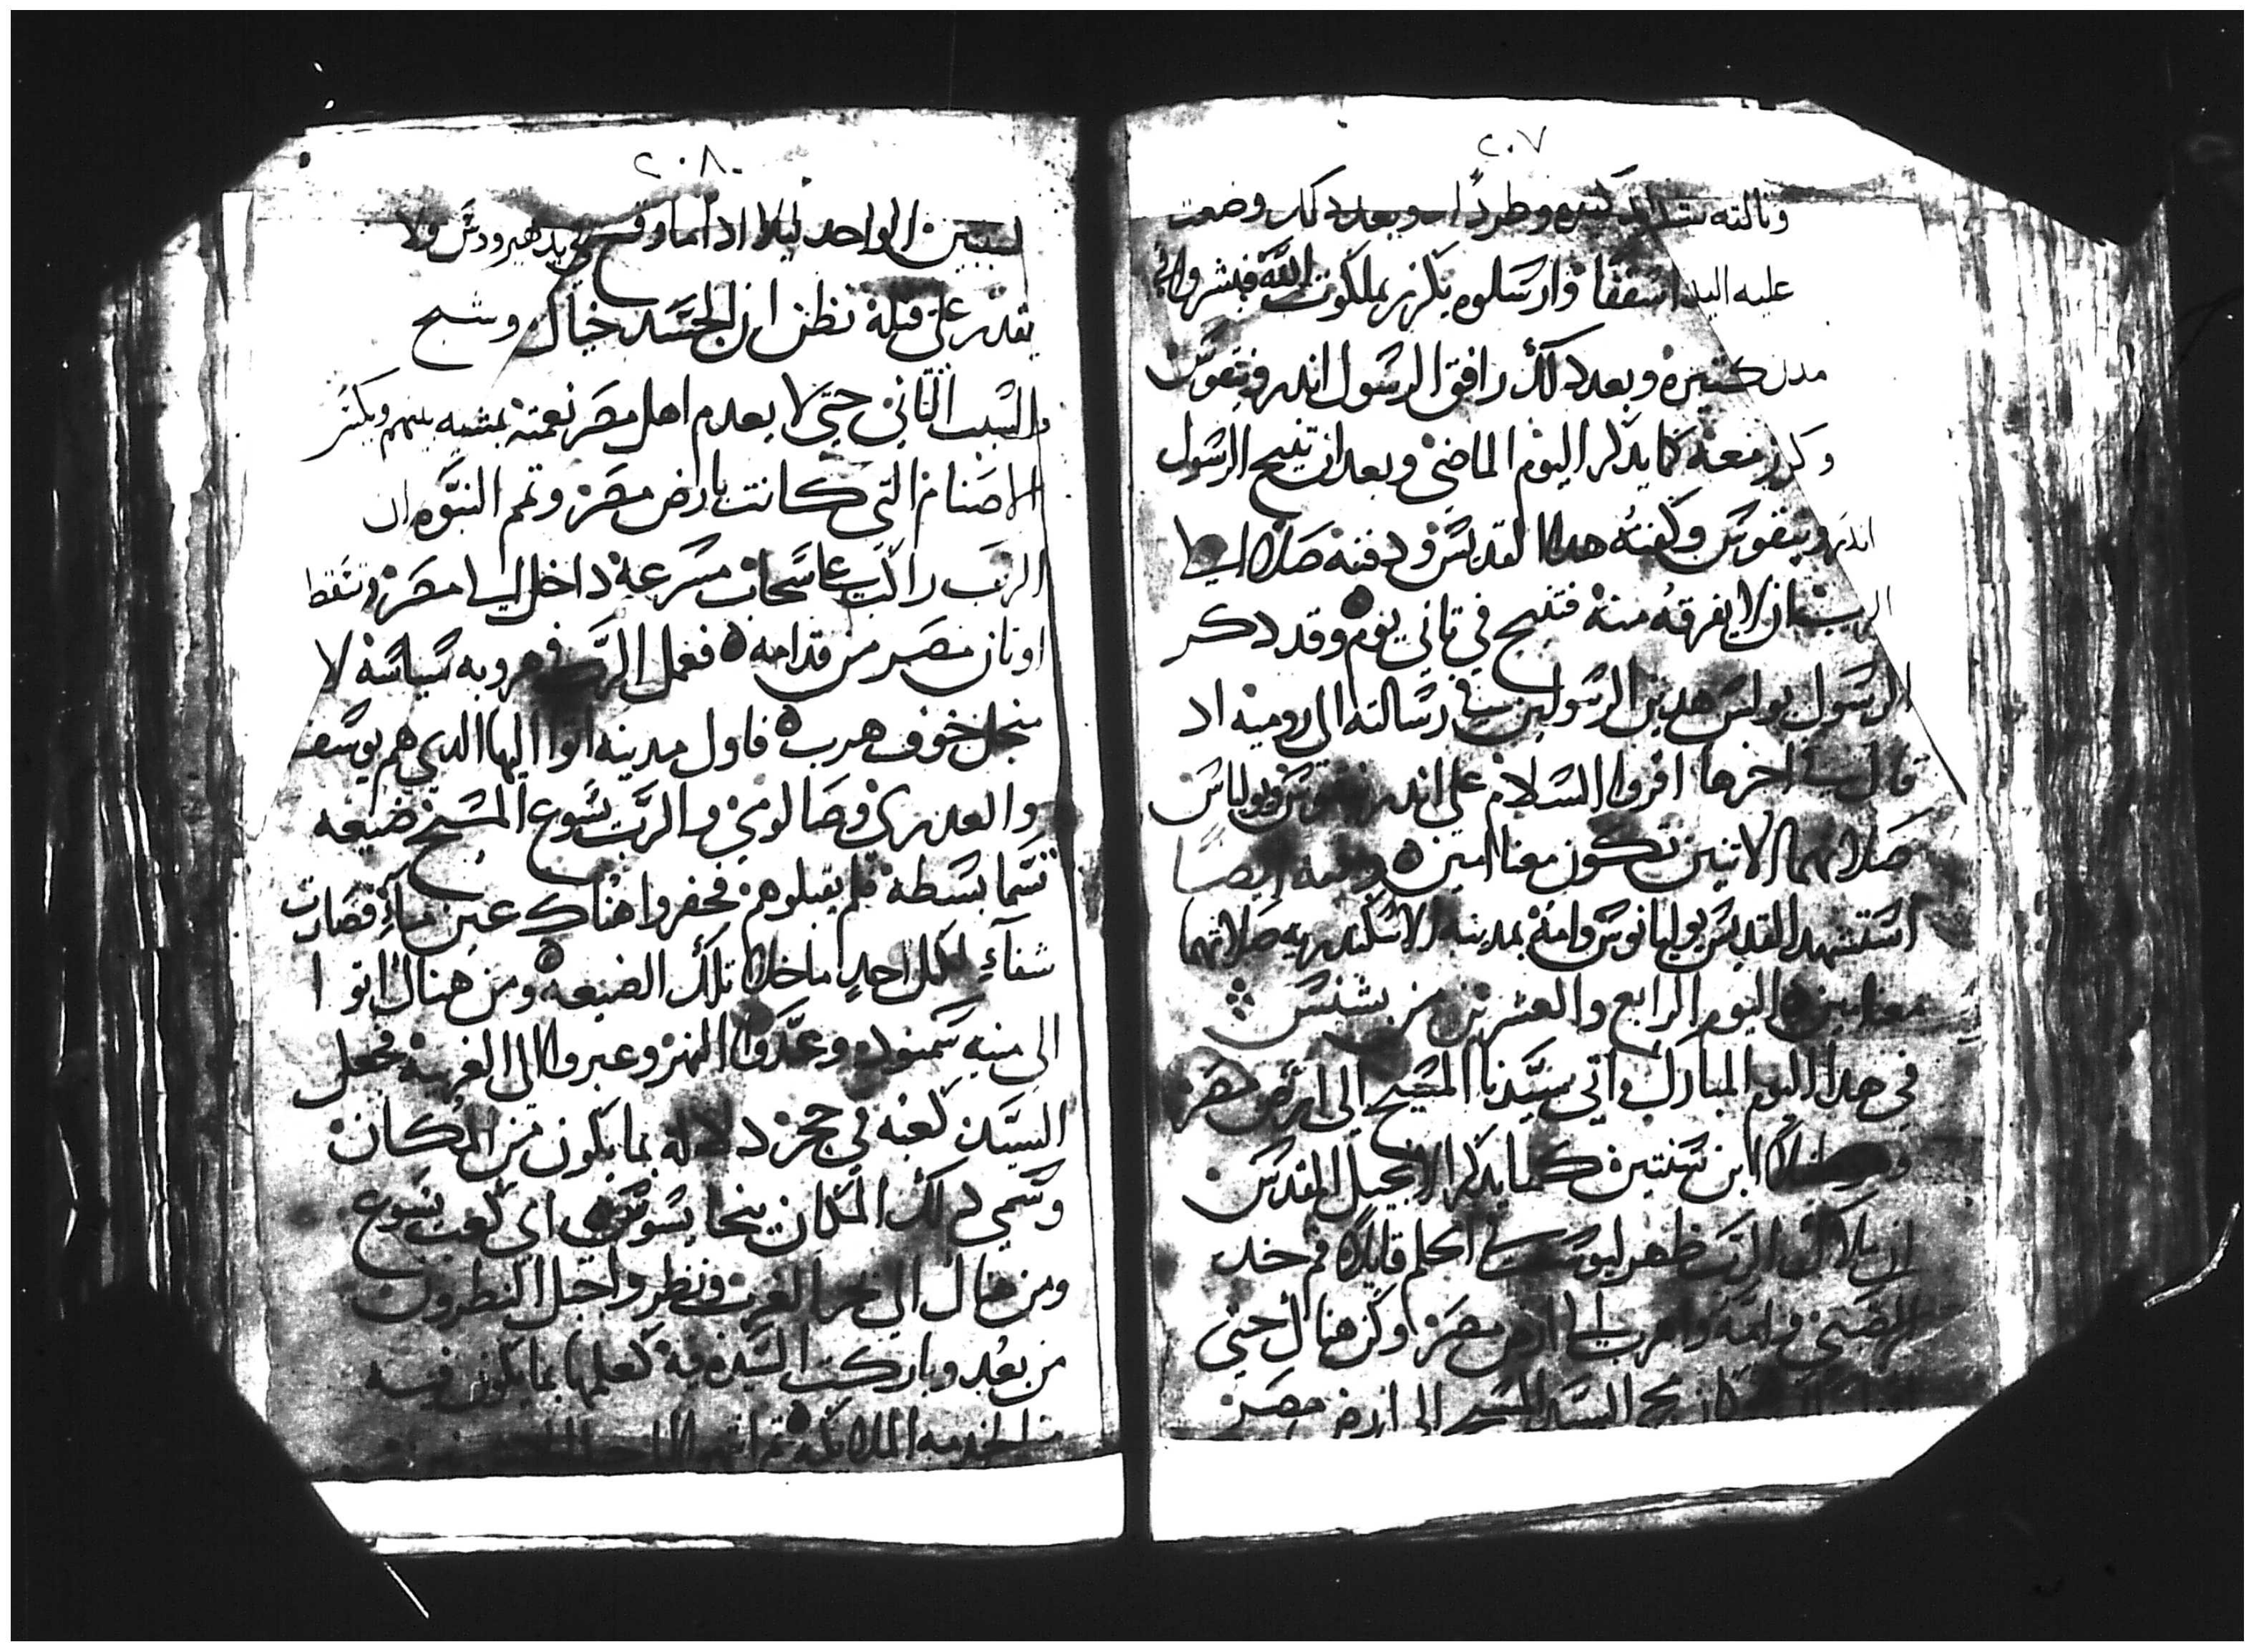 ٢٠٧
ونالته شدايد كتيره وطرد وبعد دلك وضعت
عليه اليد اسقفا وارسلوه يكرز بملكوت الله فبشر واتي
مدن كتيره وبعد دلك رافق الرسول اندرونيقوس
وكرز معه كما يدكر اليوم الماضي وبعد ان تنيح الرسول
اندرونيقوس وكفنه هدا القديس ودفنه صلا الي
الرب ان لا يفرقه منه فتنيح في تاني يوم وقد دكر
الرسول بولس هدين الرسولين في رسالته الي روميه اد
قال في اخرها اقروا السلام علي اندرونيقوس ويولياس
صلاتهما الاتنين تكون معنا امين وفيه ايضا
استشهد القديس يوليانوس وامه بمدينه الاسكندريه صلاتهما
معنا امين اليوم الرابع والعشرين من بشنس
في هدا اليوم المبارك اتي سيدنا المسيح الي ارض مصر
وهو طفلا ابن سنتين كما يدكر الانجيل المقدس
ان ملاك الرب ظهر ليوسف في الحلم قايلا قم خد
الصبي وامه واهرب الي ارض مصر وكن هناك حتي
مجي السيد المسيح الي ارض مصر
٢٠٨
لسببين الواحد ليلا ادا ما وقع في يد هيرودس ولا
يقدر علي قتله نظن ان الجسد خيال وشبح
والسبب التاني حتي لا يعدم اهل مصر نعمته بمشيه بينهم ويكسر
الاصنام التي كانت بارض مصر وتتم النبوه ان
الرب راكب علي سحاب مسرعه داخل الي مصر وتسقط
اوتان مصر من قدامه فعمل الرب في هروبه سياسه لا
من اجل خوف هرب فاول مدينه اتوا اليها الدي هم يوسف
والعدري وصالومي والرب يسوع المسيح ضيعه
تسما بسطه فلم يقبلوهم فحفروا هناك عين ماء فصارت
شفآء لكل احد ما خلا تلك الضيعه ومن هناك اتوا
الي منيه سمنود وعدوا النهر وعبروا الي الغربيه فجعل
السيد كعبه في حجر دلاله بما يكون من المكان
وسمي دلك المكان بيخا يسوس اي كعب يسوع
ومن هناك الي بحرا الغرب ونظروا جبل النطرون
من بعد وباركت السيده فيه لعلمها بما يكون فيه
من الخدمه الملايكيه تم انتهوا الي